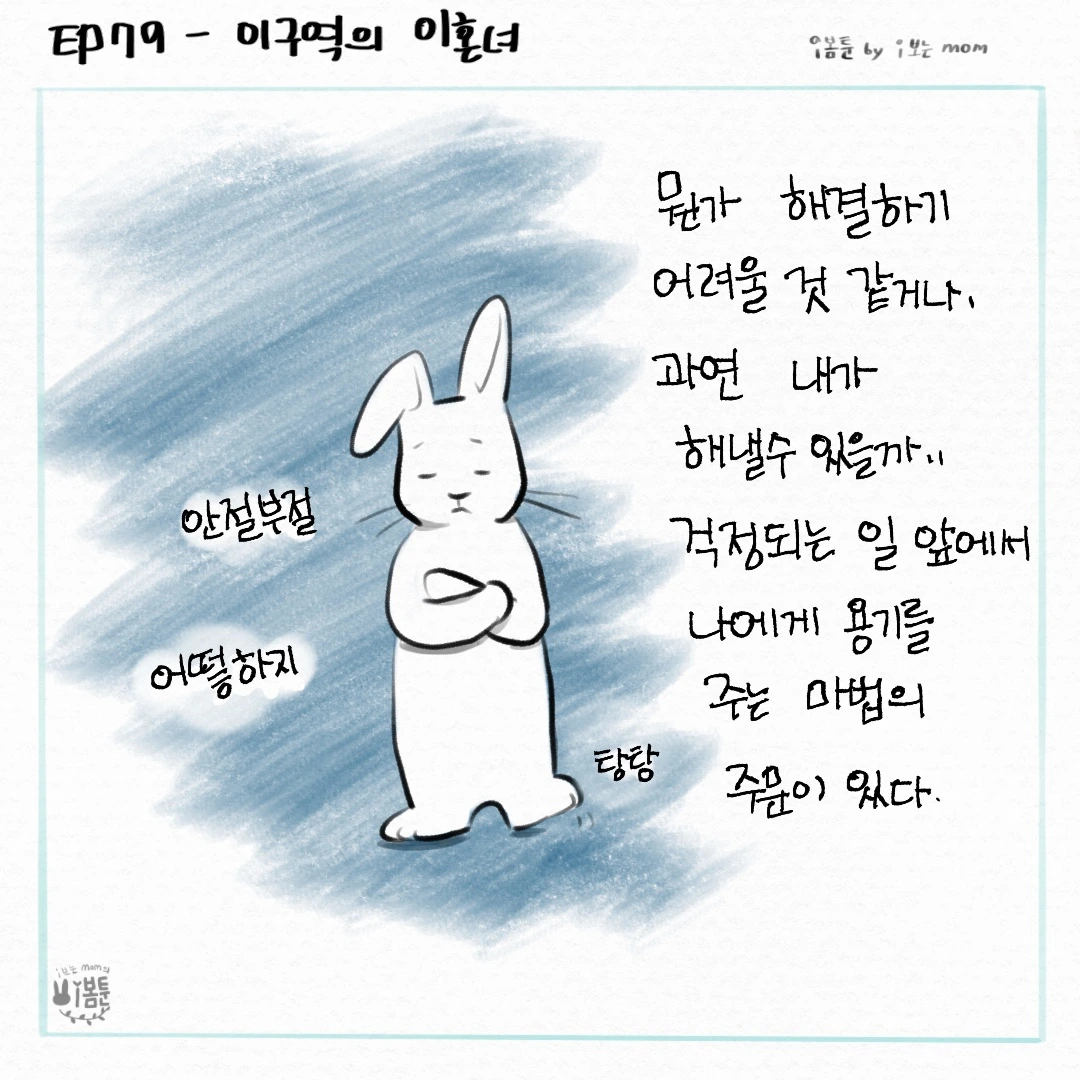 EP79 - 이구역의 이혼녀
i봄툰 by i보는 mom
뭔가 해결하기
어려울 것 같거나,
과연 내가
해낼수 있을까..
걱정되는 일 앞에서
나에게 용기를
주는 마법의
주문이 있다.
안절부절
어떻하지
탕탕
i보는 mom의
i봄툰